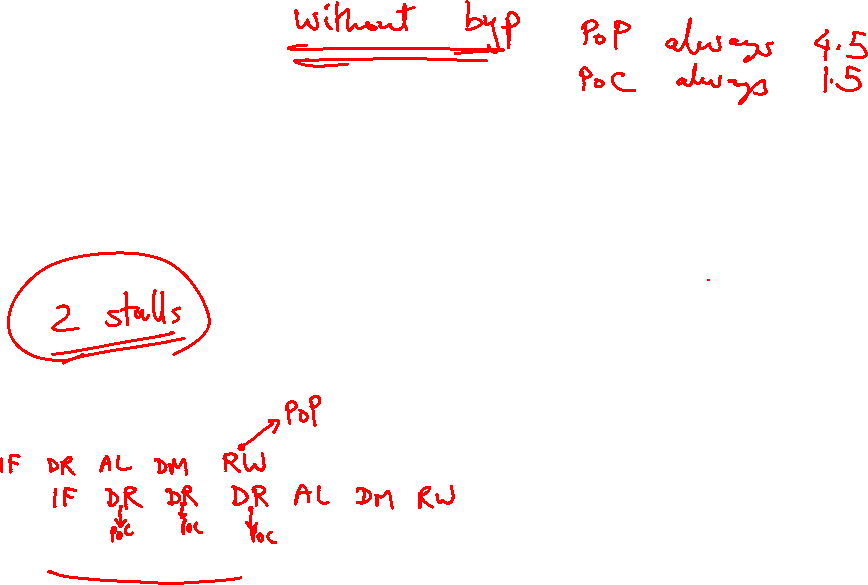 without byp
PoP always 4.5
PoC always 1.5
2 stalls
PoP
IF DR AL DM RW
IF DR DR DR AL DM RW
PoC PoC PoC